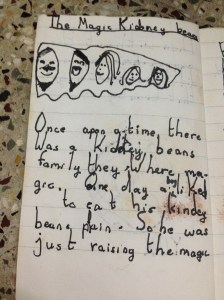 The Magic Kidney beans
Once apon a time there
was a Kidney beans
family they where ma-
gic. One day a liked
to eat his kindey
beans plain. So he was
just raising the magic